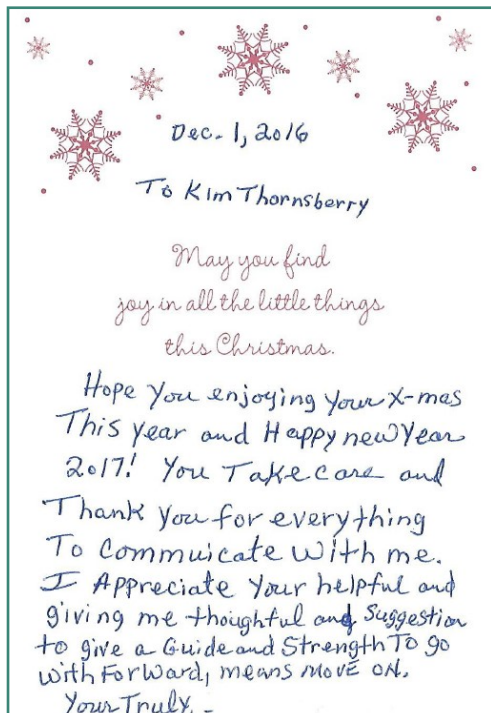 Dec. 1, 2016
To Kim Thornsberry
May you find
joy in all the little things
this Christmas.
Hope You enjoying Your X-mas
This year and Happy new Year
2017! You Take care and
Thank you for everything
To Commuicate With me.
I Appreciate Your helpful and
giving me thoughtful and Suggestion
to give a Guide and Strength To go
With Forward, means move on.
Your Truly, -